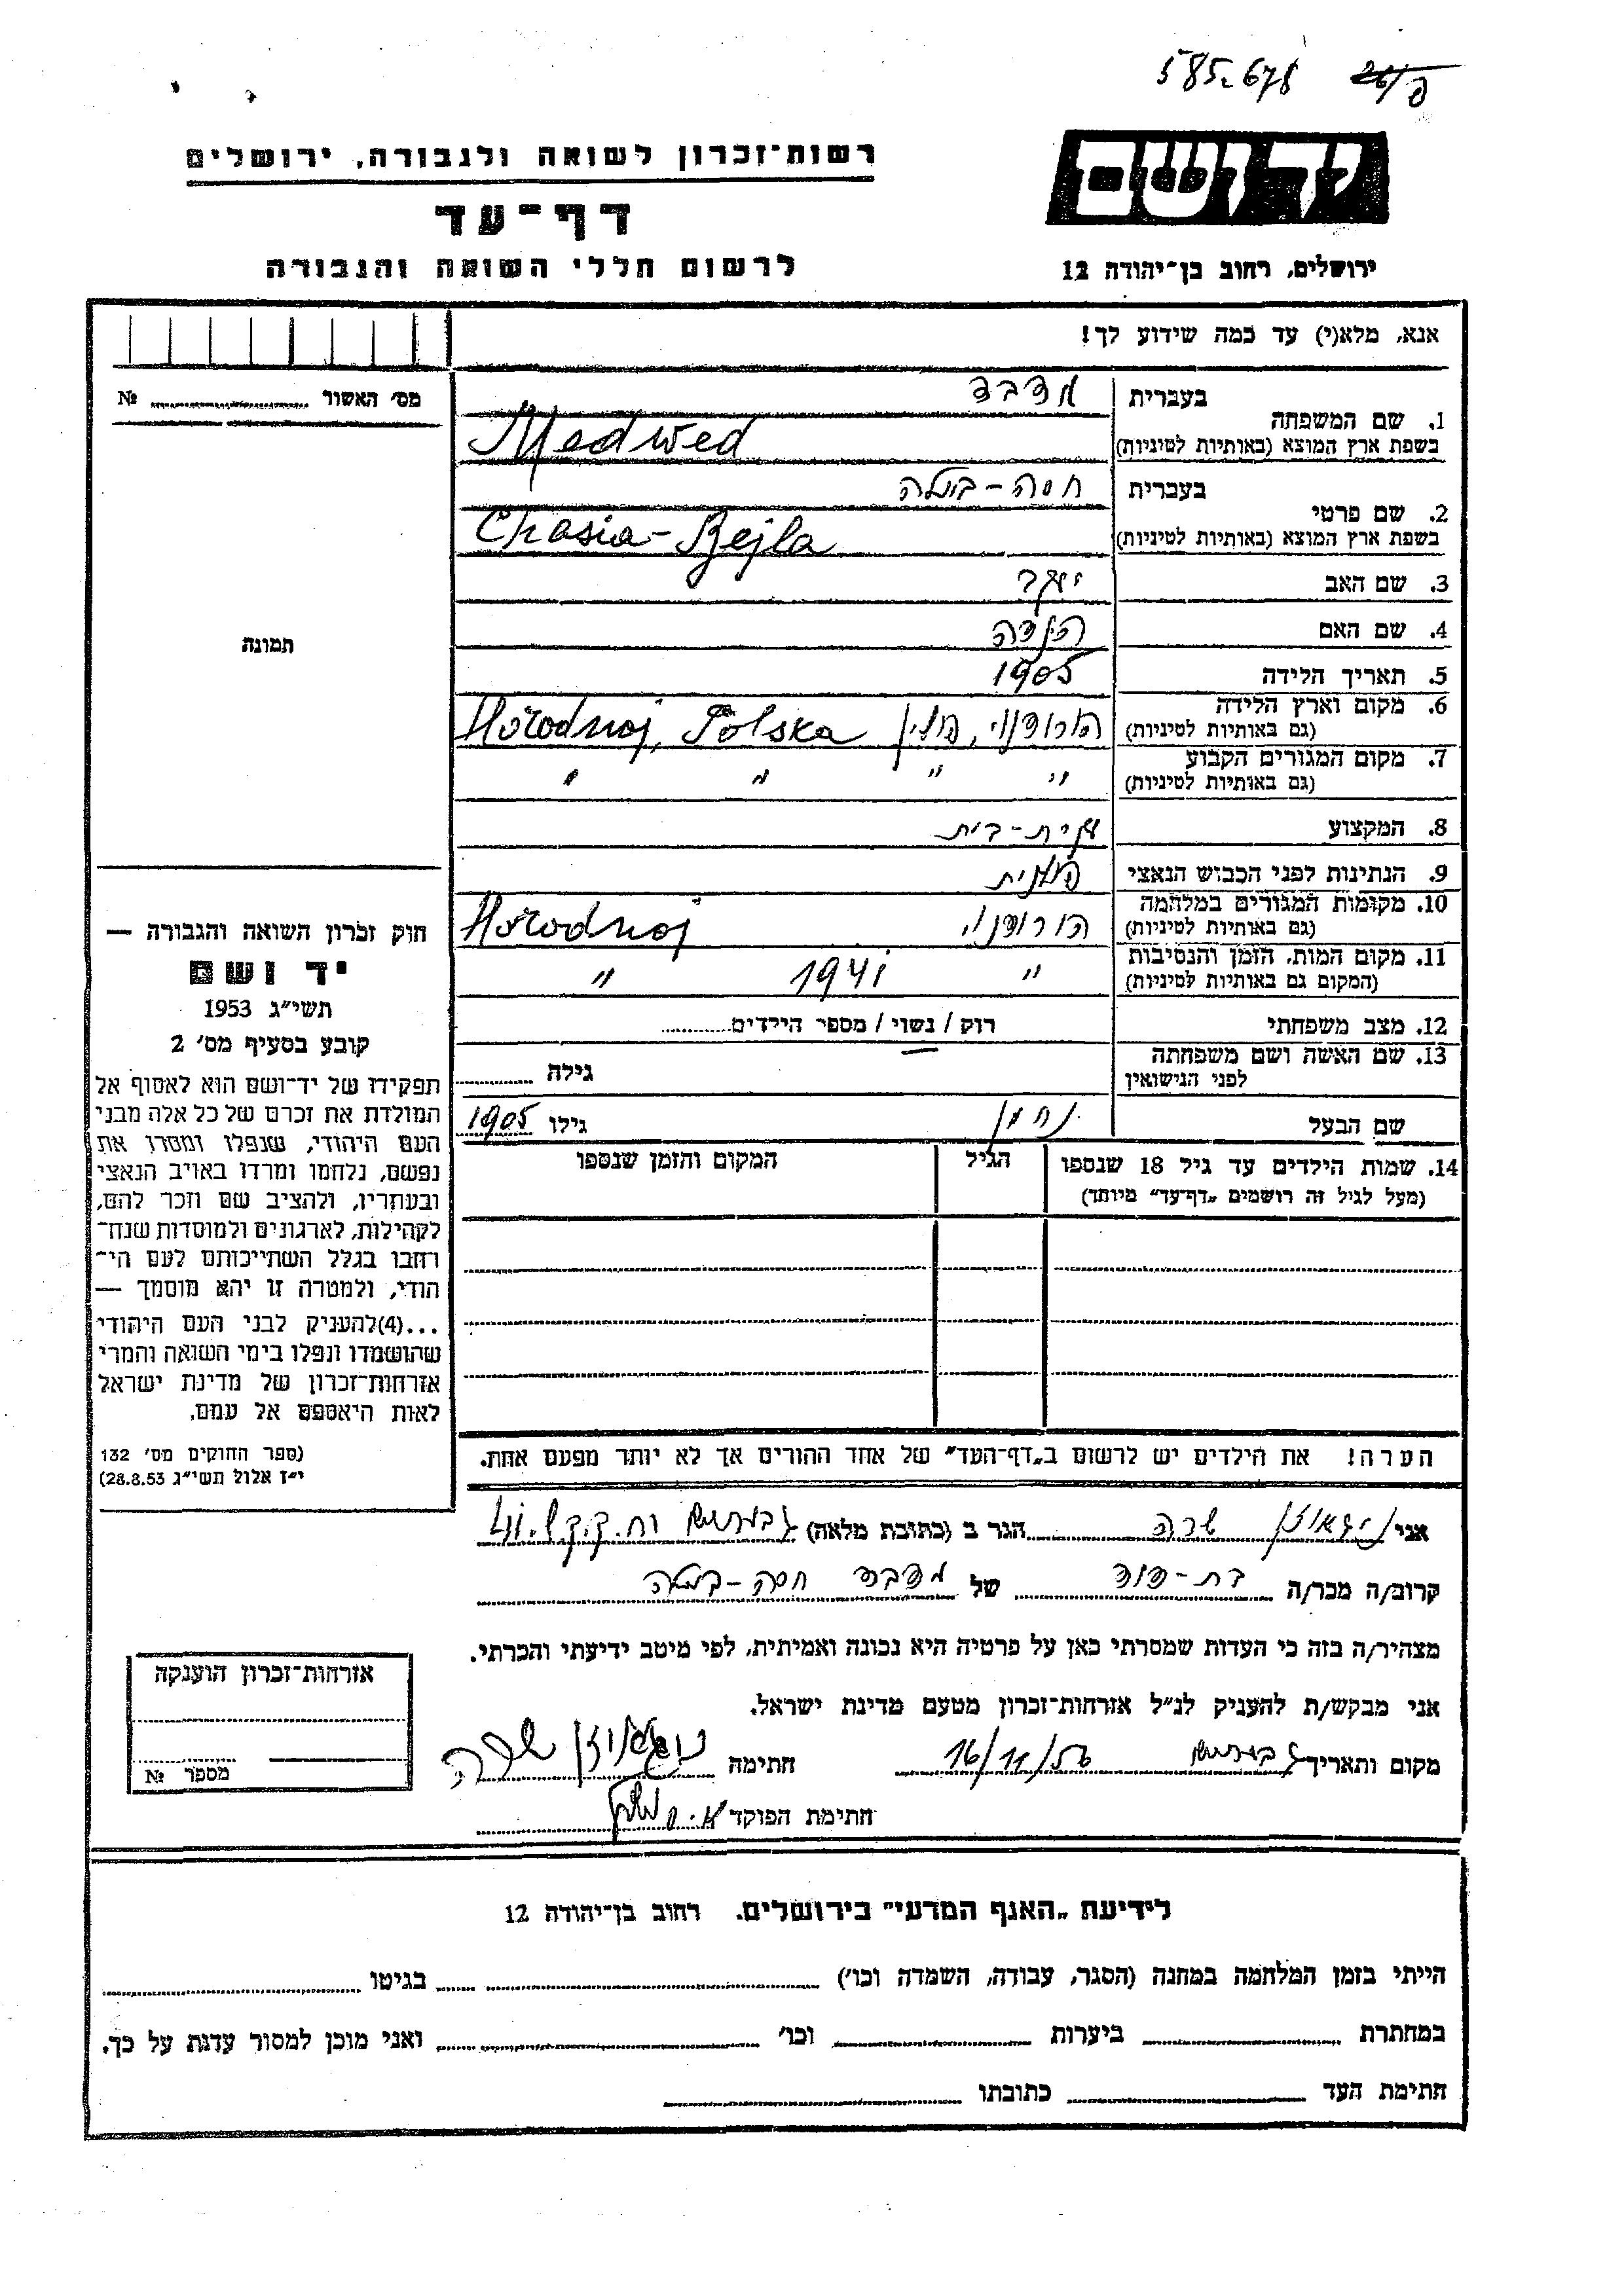 585.678
רשות־זכרון לשואה ולגבורה, ירושלים
יד ושם
דף־עד
לרשום חללי השואה והגבורה
ירושלים, רחוב בן־יהודה 12
אנא, מלא(י) עד כמה שידוע לך!
מס' האשור № ..........
1. שם המשפחה
בעברית מדבד
בשפת ארץ המוצא (באותיות לטיניות) Medwed
2. שם פרטי
בעברית חסה-בילה
בשפת ארץ המוצא (באותיות לטיניות) Chasia-Bejla
3. שם האב יעקב
4. שם האם הינדה
5. תאריך הלידה 1905
6. מקום וארץ הלידה
(גם באותיות לטיניות) הורודנוי, פולין Horodnoj, Polska
7. מקום המגורים הקבוע
(גם באותיות לטיניות) " " " "
8. המקצוע עקרת-בית
9. הנתינות לפני הכבוש הנאצי פולנית
10. מקומות המגורים במלחמה
(גם באותיות לטיניות) הורודנוי Horodnoj
11. מקום המות, הזמן והנסיבות
(המקום גם באותיות לטיניות) " 1941 "
12. מצב משפחתי רוק / נשוי / מספר הילדים..........
13. שם האשה ושם משפחתה
לפני הנישואין גילה ..........
שם הבעל נחמן גילו 1905
14. שמות הילדים עד גיל 18 שנספו הגיל המקום והזמן שנספו
(מעל לגיל זה רושמים „דף־עד" מיוחד)
הערה! את הילדים יש לרשום ב„דף־העד" של אחד ההורים אך לא יותר מפעם אחת.
תמונה
חוק זכרון השואה והגבורה —
יד ושם
תשי״ג 1953
קובע בסעיף מס' 2
תפקידו של יד־ושם הוא לאסוף אל
המולדת את זכרם של כל אלה מבני
העם היהודי, שנפלו ומסרו את
נפשם, נלחמו ומרדו באויב הנאצי
ובעוזריו, ולהציב שם וזכר להם,
לקהילות, לארגונים ולמוסדות שנח־
רחבו בגלל השתייכותם לעם הי־
הודי, ולמטרה זו יהא מוסמך —
...(4)להעניק לבני העם היהודי
שהושמדו ונפלו בימי השואה והמרי
אזרחות־זכרון של מדינת ישראל
לאות היאספם אל עמם.
(ספר החוקים מס' 132
י״ז אלול תשי״ג 28.8.53)
אני שרה הגר ב (כתובת מלאה)
קרוב/ה מכר/ה בת-דוד של מדבד חסה-בילה
מצהיר/ה בזה כי העדות שמסרתי כאן על פרטיה היא נכונה ואמיתית, לפי מיטב ידיעתי והכרתי.
אני מבקש/ת להעניק לנ״ל אזרחות־זכרון מטעם מדינת ישראל.
מקום ותאריך 16/11/56 חתימה שרה
חתימת הפוקד
אזרחות־זכרון הוענקה
מספר №
לידיעת „האגף המדעי" בירושלים. רחוב בן־יהודה 12
הייתי בזמן המלחמה במחנה (הסגר, עבודה, השמדה וכו') .......... בגיטו ..........
במחתרת .......... ביערות .......... וכו' .......... ואני מוכן למסור עדות על כך.
חתימת העד .......... כתובתו ..........